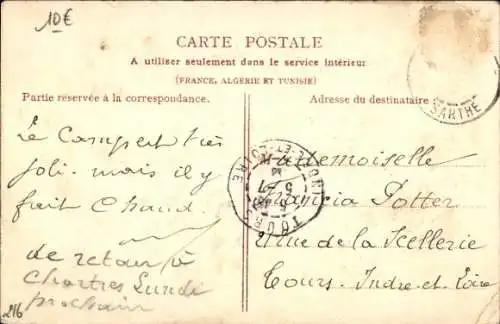 10€
CARTE POSTALE
A utiliser seulement dans le service intérieur
(FRANCE, ALGERIE ET TUNISIE)
Partie réservée à la correspondance.
Adresse du destinataire
SARTHE
Le Camp est très
joli. mais il y
fait Chaud.
de retour à
Chartres Lundi
prochain
216
TOURS
INDRE-ET-LOIRE
Mademoiselle
Potter
Rue de la Scellerie
Tours. Indre et Loire